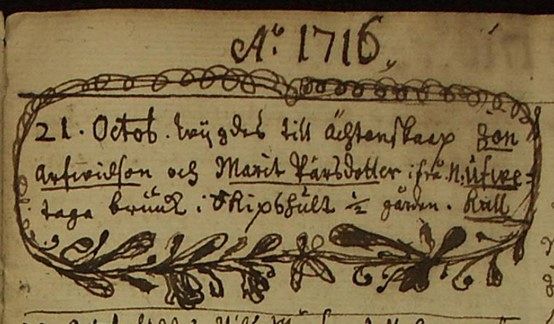 Aº 1716.
21. Octob. wygdes till Ächtenskaap Jon
Arfwidson och Marit Pärsdotter ifrå N:
taga bruuk i Skipshult ½ gården. Kull